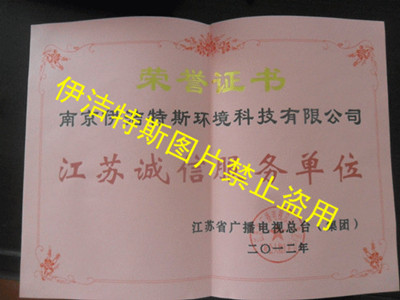 荣誉证书
南京伊洁特斯环境科技有限公司
江苏诚信服务单位
江苏省广播电视总台（集团）
二〇一二年
伊洁特斯图片禁止盗用